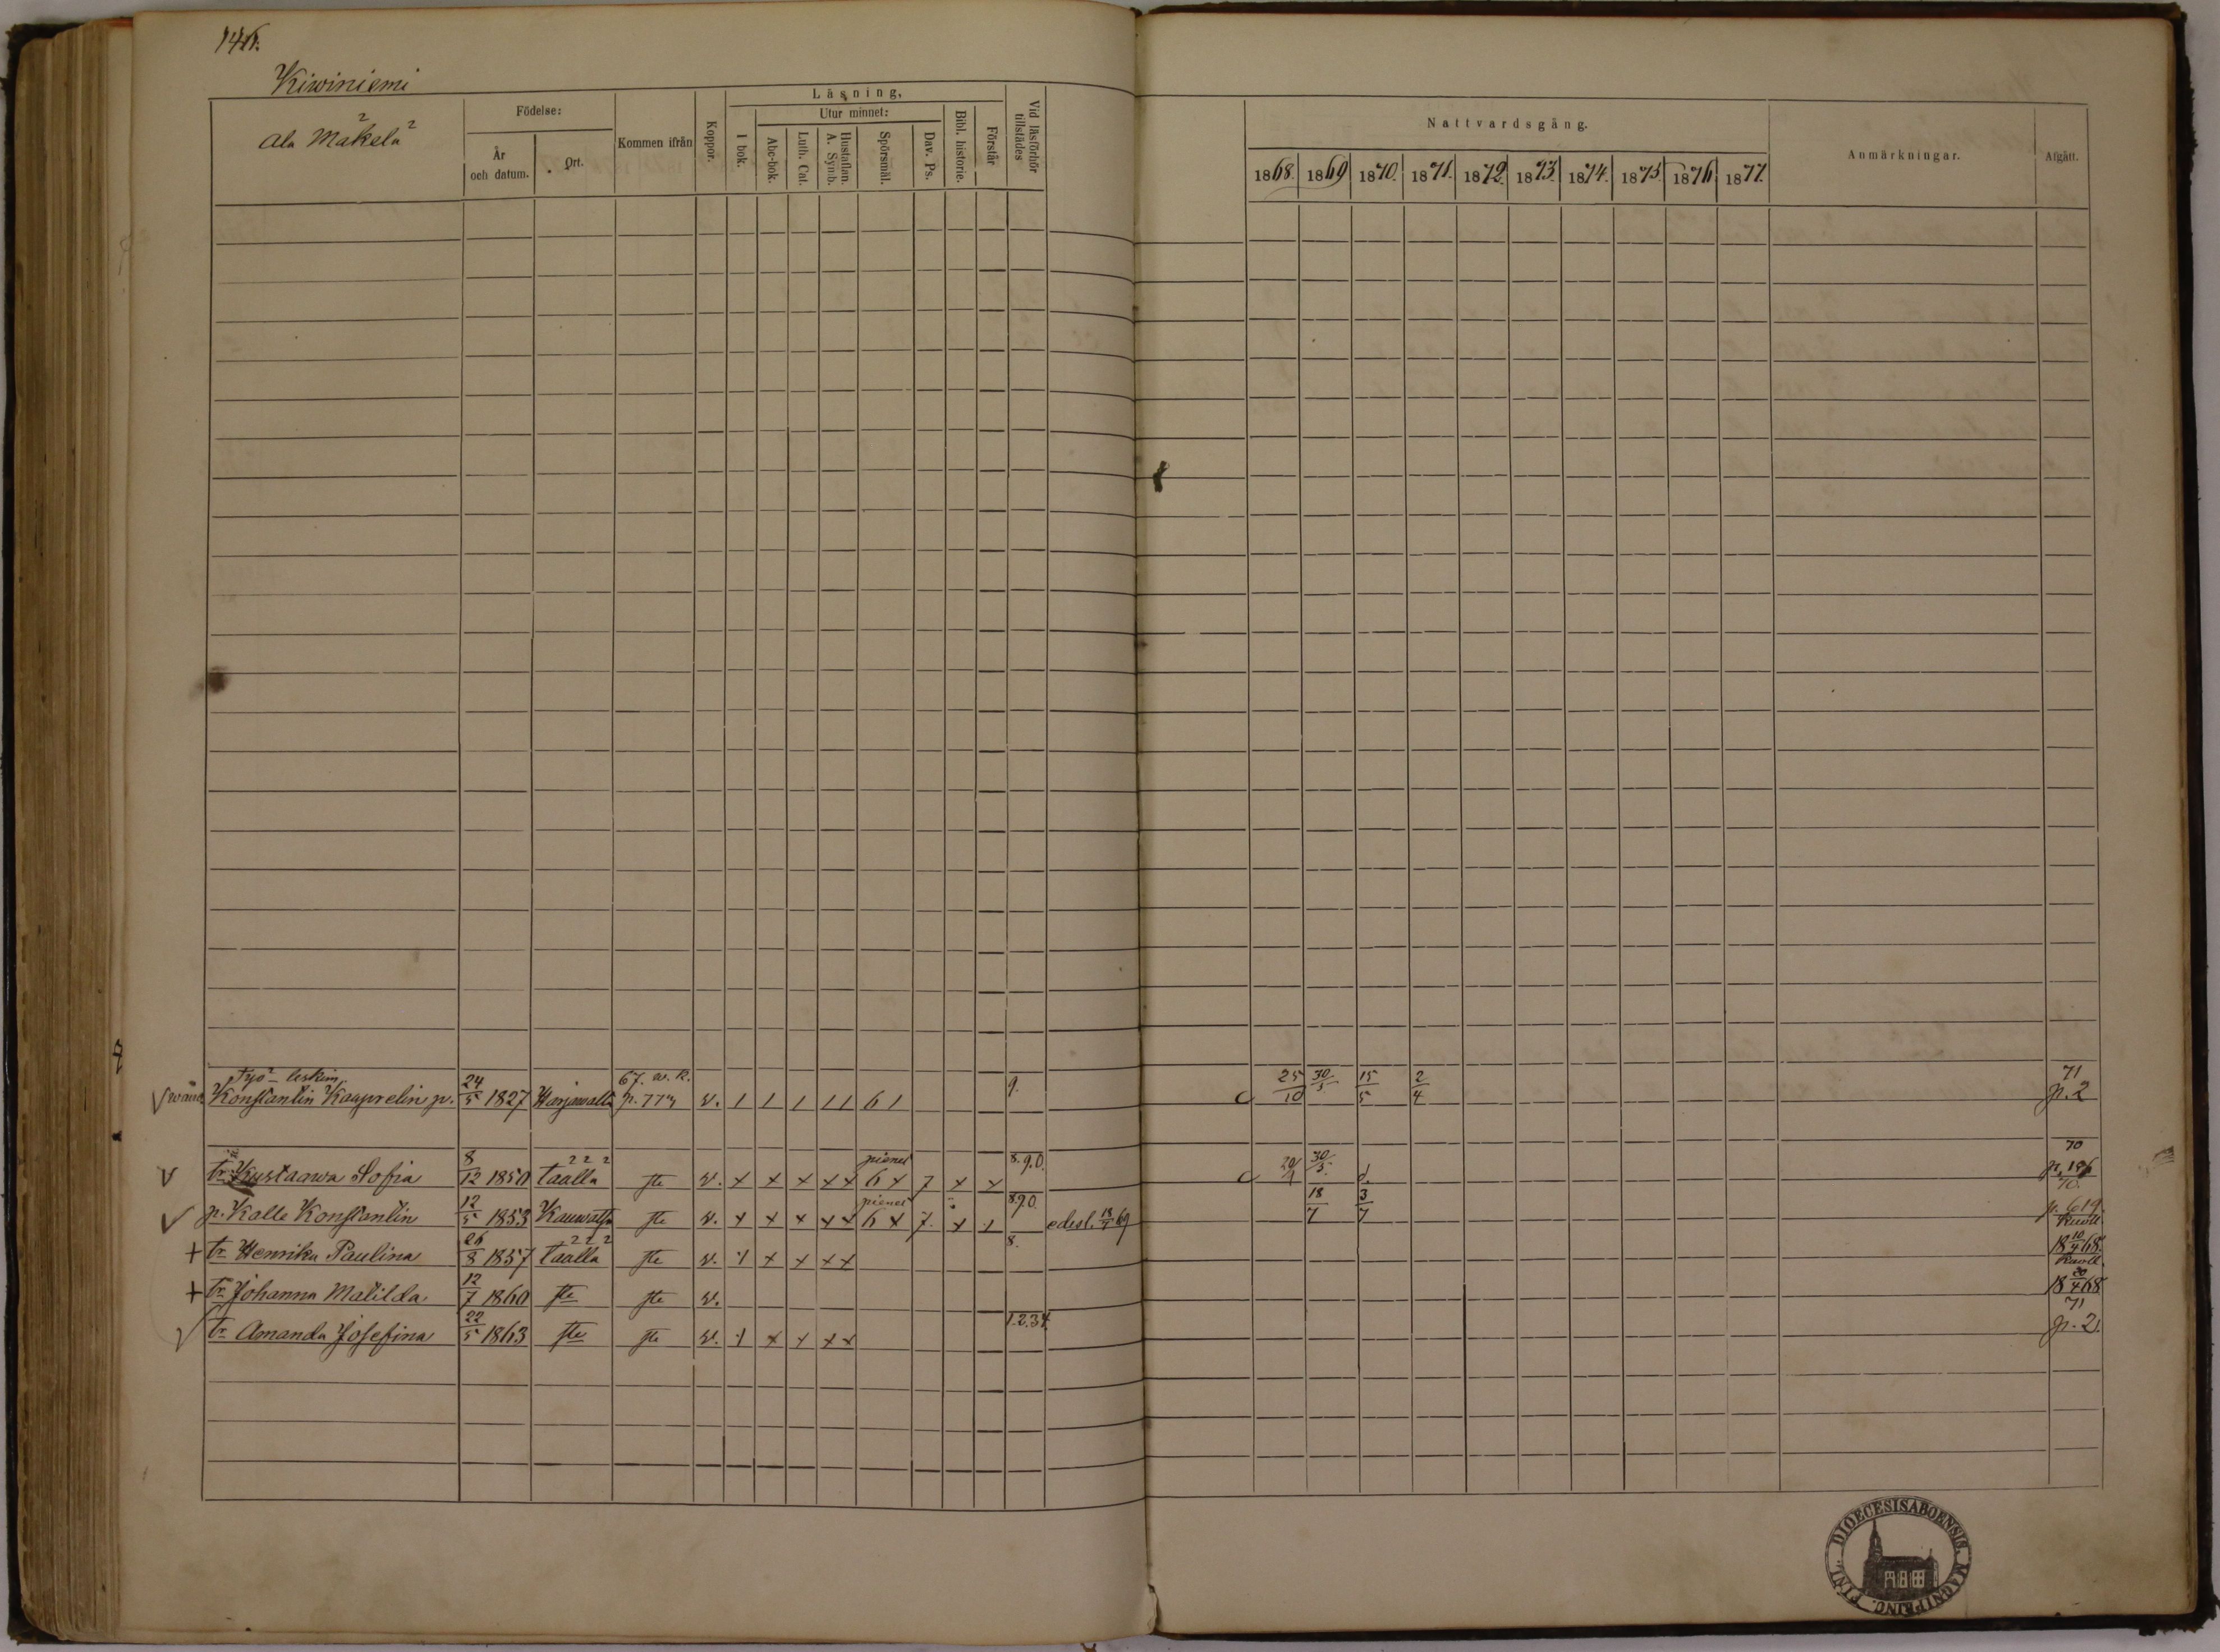 Kiwiniemi
Ala Mäkelä
Födelse:
År och datum.
Ort.
Kommen ifrån
Koppor.
Läsning,
I bok.
Utur minnet:
Abc-bok.
Luth. Cat.
Hustaflan. A. Symb.
Spörsmål.
Dav. Ps.
Bibl. historie.
Förstår
Vid läsförhör tillstädes
Nattvardsgång.
1868. 1869 1870. 1871. 1872. 1873. 1874. 1875. 1876. 1877.
Anmärkningar.
Afgått.
Työ-leskim. 67. w. k. 71
Konstantin Kaaprelin p. 24/5 1827 Harjawalta v. 1 1 1 1 1 6 1 9. 25/10 30/5 15/5 2/4 p. 2
pienet 70
tr Kustaawa Sofia 8/12 1850 täällä v. x x x x x 6 x 7 x x 8.9.0. 30/5
pienet
p. Kalle Konstantin 12/5 1853 v. x x x x x 6 x 7. x x 8.9.0. edesl. 69 18/7 3/7 p. 619
tr Henrika Paulina 26/8 1857 täällä v. x x x x x 8. Kuoll. 18 10/4 68.
tr Johanna Matilda 12/7 1860 v. Kuoll. 18 20/4 68
tr Amanda Josefina 22/5 1863 v. x x x x x 1.2.3.4. 71 p. 2.
DIOECESIS ABOENSIS. MAGNI PRINC. FINL.